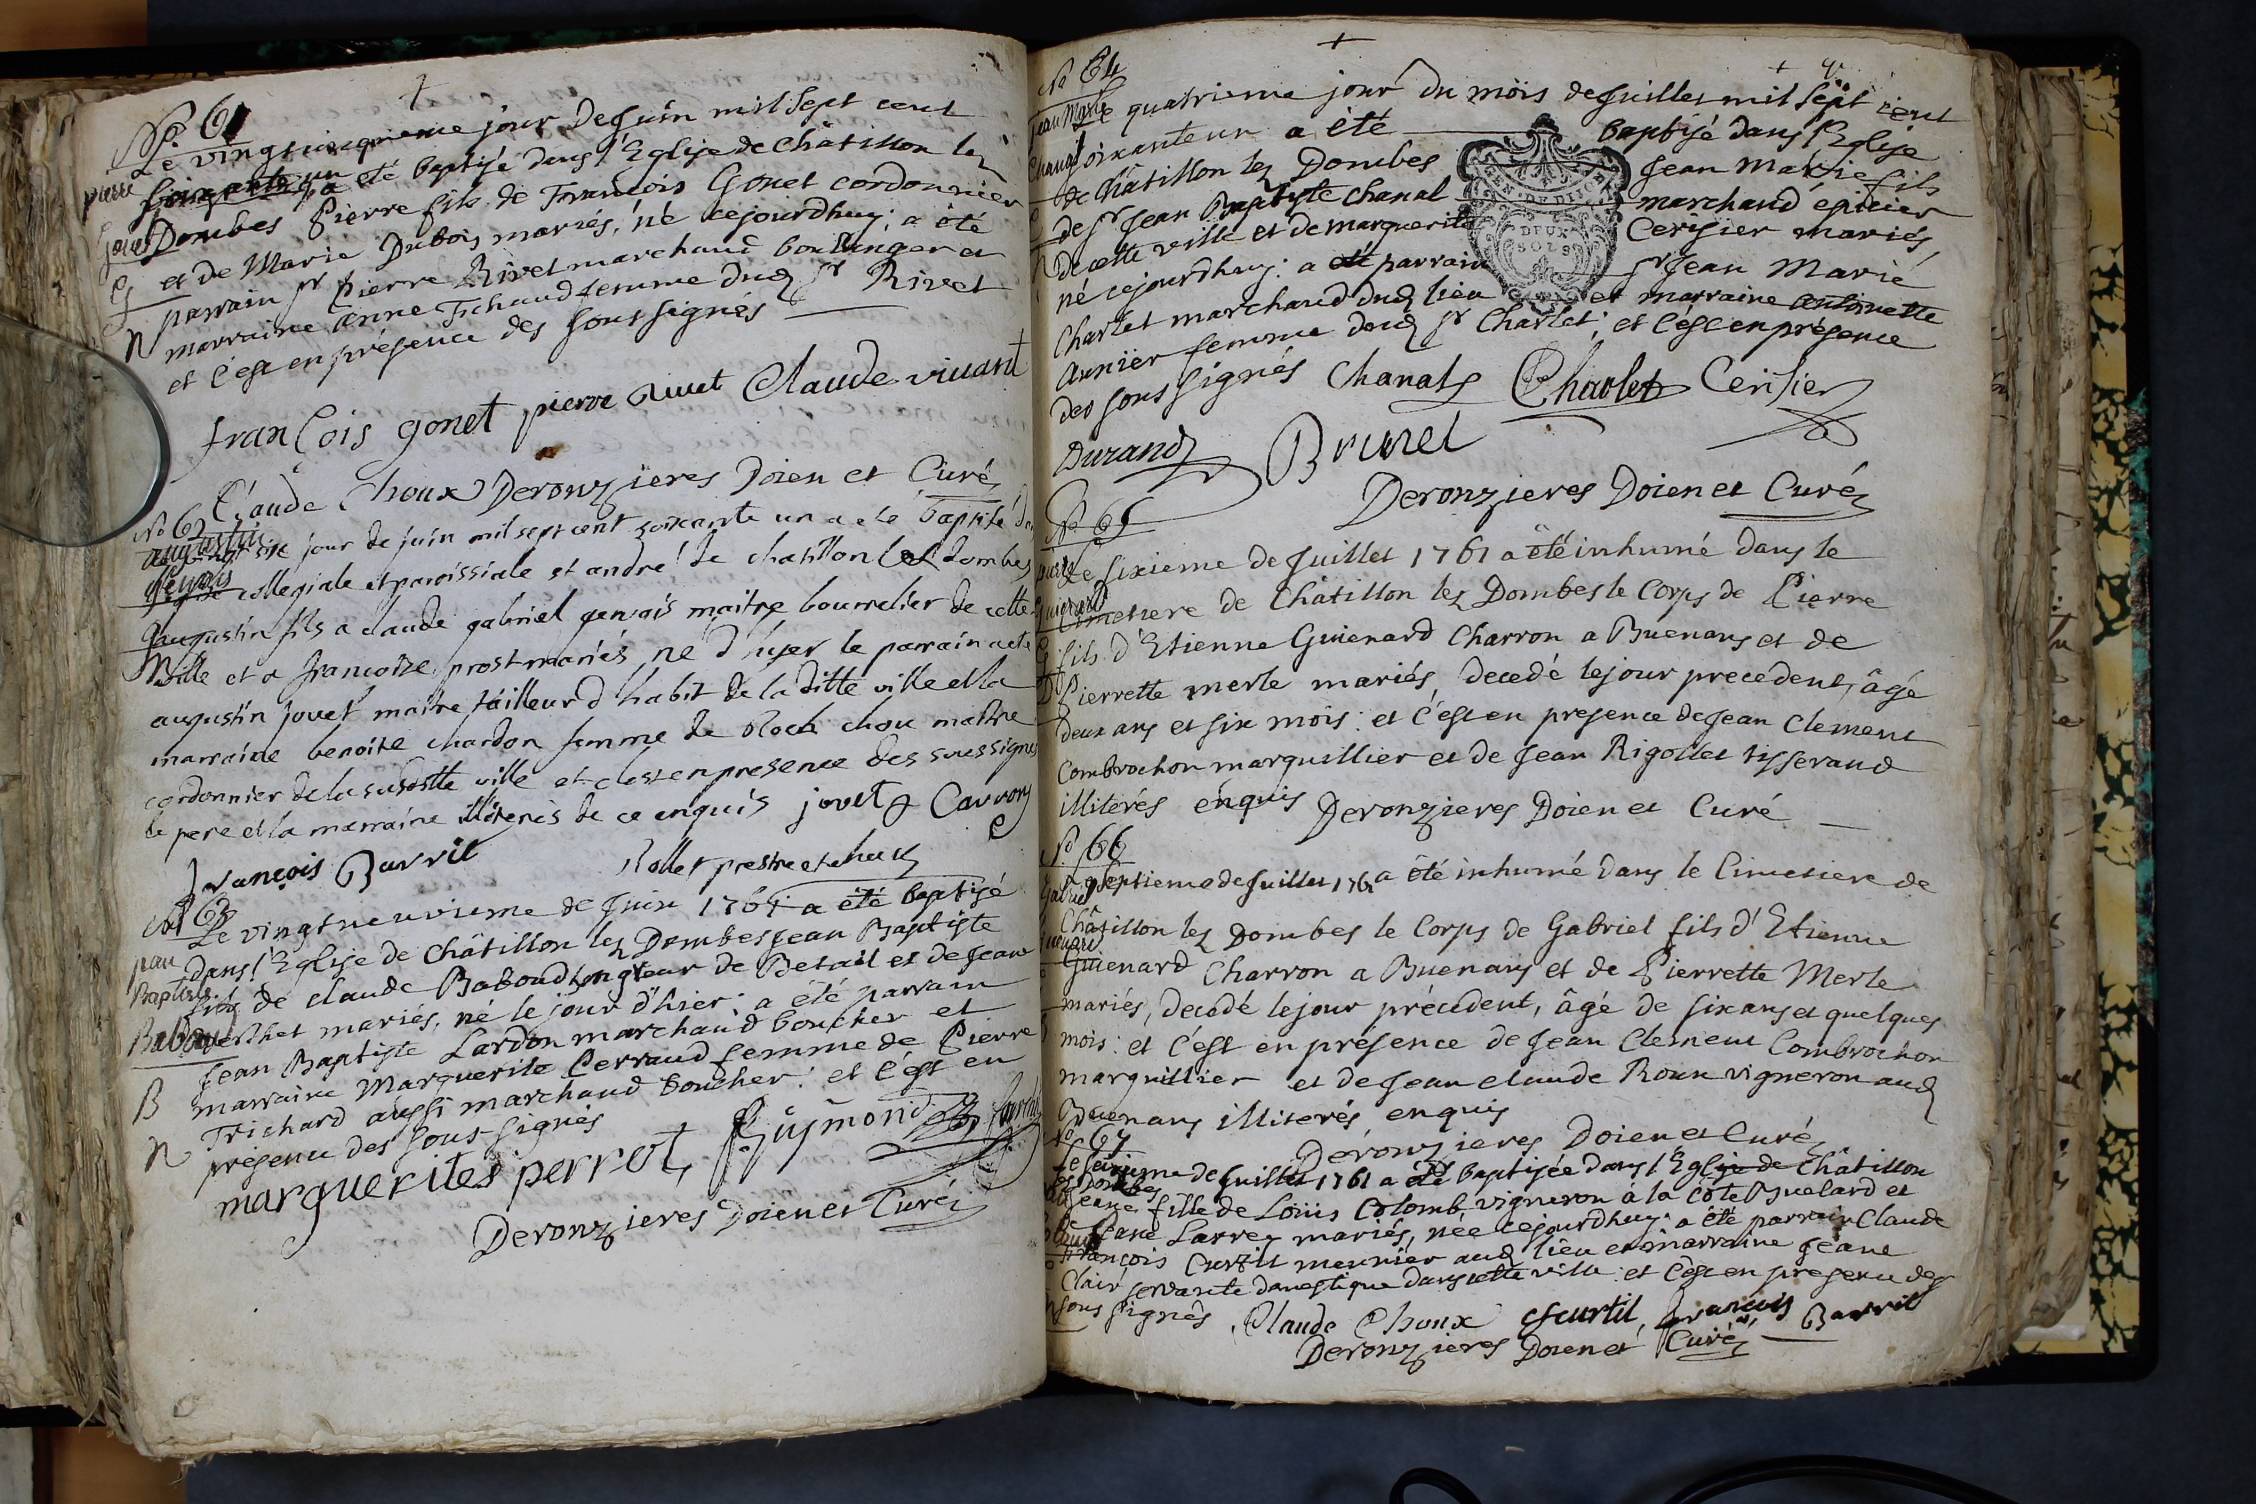 N° 61
Le vingt cinquieme jour de Juin mil sept cent
pierre soixante un a été baptisé dans l'Eglise de Châtillon lez
gonet Dombes Pierre fils de François Gonet cordonnier
et de Marie Dubois mariés, né cejourdhuy: a été
parrain sr Pierre Rivet marchand boulanger et
marraine Anne Tichaud femme dud sr Rivet
et c'est en présence des soussignés
françois gonet pierre rivet Claude vivant
Claude Choux Deronzieres Doien et Curé
N° 62
augustin
gervais
le vingt six jour de juin mil sept cent soixante un a eté baptisé dans
collegiale et paroissiale st andré de chatillon les dombes
augustin fils a claude gabriel gervais maitre bourrelier de cette
ville et a francoise prost mariés né d'hyer le parrain a ete
augustin jouet maitre tailleur d habit de la ditte ville et la
marraine benoite chardon femme de Roch chou maitre
cordonnier de la susditte ville et c'est en presence des soussignés
le pere et la marraine illiterés de ce enquis jovet Carron
françois Barrit Rollet prestre et
N° 63
Le vingt neuvieme de Juin 1761 a été baptisé
jean dans l'Eglise de Châtillon lez Dombes Jean Baptiste
Baptiste fils de claude Baboud langueur de Betail et de Jeane
Baboud Berthet mariés, né le jour d'hier: a été parrain
Jean Baptiste Lardon marchand boucher et
B marraine Marguerite Perraud femme de Pierre
Trichard aussi marchand boucher: et c'est en
N présence des sous signés
marguerites perrot, Guymond
Deronzieres Doien et Curé
N° 64
Jean Marie Le quatrieme jour du mois de Juillet mil sept cent
Chanal soixante un a été baptisé dans l'Eglise
de Châtillon lez Dombes Jean Marie fils
de sr Jean Baptiste Chanal marchand épicier
de cette ville et de marguerite Cerisier mariés,
né cejourdhuy: a été parrain sr Jean Marie
Charlet marchand dud lieu et marraine Antoinette
Aunier femme doud sr Charlet; et c'est en présence
des sous signés Chanal Charlet Cerisier
Durand Brunel
Deronzieres Doien et Curé
GEN. DE DIJON
DEUX
SOLS
N° 65
Le sixieme de Juillet 1761 a été inhumé dans le
Cimetiere de Châtillon lez Dombes le Corps de Pierre
fils d'Etienne Guienard Charron a Buenans et de
Pierrette merle mariés, decedé le jour precedent, âgé
deux ans et six mois: et c'est en presence de Jean Clement
Combrochon marguillier et de Jean Rigollet tisserand
illiterés enquis Deronzieres Doien et Curé
N° 66
Le septieme de Juillet 1761 a été inhumé dans le Cimetiere de
Châtillon lez Dombes le Corps de Gabriel fils d'Etienne
Guienard Charron a Buenans et de Pierrette Merle
mariés, decedé le jour précédent, âgé de six ans et quelques
mois: et c'est en présence de Jean Clement Combrochon
marguillier et de Jean claude Roux vigneron aud
Buenans illiterés enquis
Deronzieres Doien et Curé
N° 67
Le septieme de Juillet 1761 a été baptisée dans l'Eglise de Châtillon
lez Dombes
Jeane fille de Loüis Colomb vigneron à la côte Buelard et
Jeane Larrey mariés, née cejourdhuy: a été parrain Claude
François Curtil meunier aud lieu et marraine Jeane
Clair servante domestique dans cette ville: et c'est en presence des
sous signés Claude Choux cfcurtil, françois Barrit
Deronzieres Doien et Curé